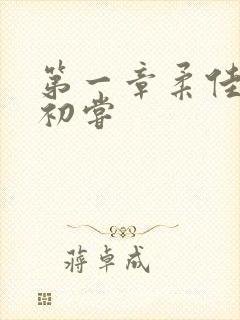 第一章柔佳
初尝
蒋卓成